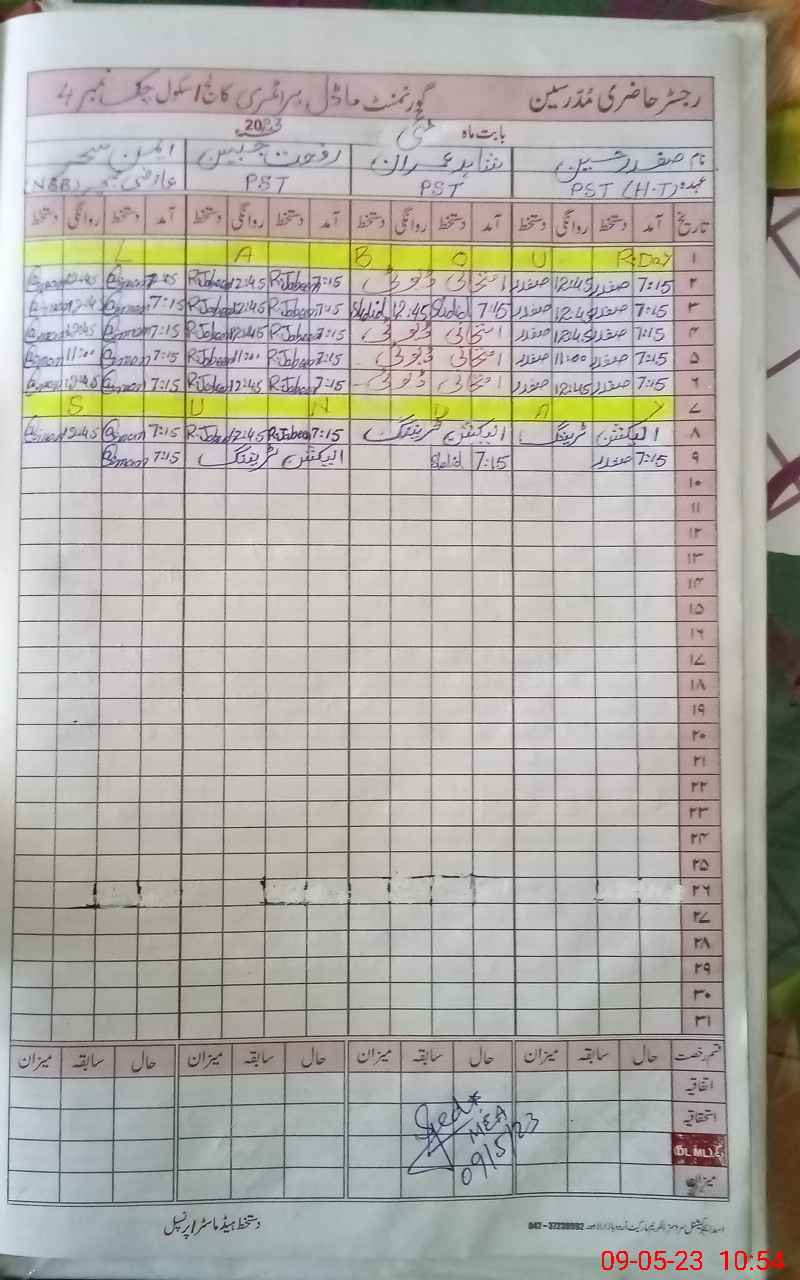 رجسٹر حاضری مُدرسین گورنمنٹ ماڈل پرائمری سکول چک نمبر 4
بابت ماہ مئی 2023
نام صفدر حسین شاہد عمران رفعت جبین ایمن سحر
عہدہ: PST (H-T) PST PST (NSB)
تاریخ آمد دستخط روانگی دستخط آمد دستخط روانگی دستخط آمد دستخط روانگی دستخط آمد دستخط روانگی دستخط
۱ L A B O U R:Day
۲ 7:15 صفدر 12:45 صفدر امتحانی ڈیوٹی 7:15 R.Jabeen 12:45 R.Jabeen 7:15 Eman 12:45 Eman
۳ 7:15 صفدر 12:45 صفدر 7:15 Shahid 12:45 Shahid 7:15 R.Jabeen 12:45 R.Jabeen 7:15 Eman 12:45 Eman
۴ 7:15 صفدر 12:45 صفدر امتحانی ڈیوٹی 7:15 R.Jabeen 12:45 R.Jabeen 7:15 Eman 12:45 Eman
۵ 7:15 صفدر 11:00 صفدر امتحانی ڈیوٹی 7:15 R.Jabeen 11:00 R.Jabeen 7:15 Eman 11:00 Eman
۶ 7:15 صفدر 12:45 صفدر امتحانی ڈیوٹی 7:15 R.Jabeen 12:45 R.Jabeen 7:15 Eman 12:45 Eman
۷ S U N D A Y
۸ الیکشن ٹریننگ الیکشن ٹریننگ 7:15 R.Jabeen 12:45 R.Jabeen 7:15 Eman 12:45 Eman
۹ 7:15 صفدر 7:15 Shahid الیکشن ٹریننگ 7:15 Eman
۱۰
۱۱
۱۲
۱۳
۱۴
۱۵
۱۶
۱۷
۱۸
۱۹
۲۰
۲۱
۲۲
۲۳
۲۴
۲۵
۲۶
۲۷
۲۸
۲۹
۳۰
۳۱
قسم رخصت حال سابقہ میزان حال سابقہ میزان حال سابقہ میزان حال سابقہ میزان
اتفاقیہ
استحقاقیہ
MEA
09/5/23
میزان
دستخط ہیڈ ماسٹر / پرنسپل
042-37239992
09-05-23 10:54